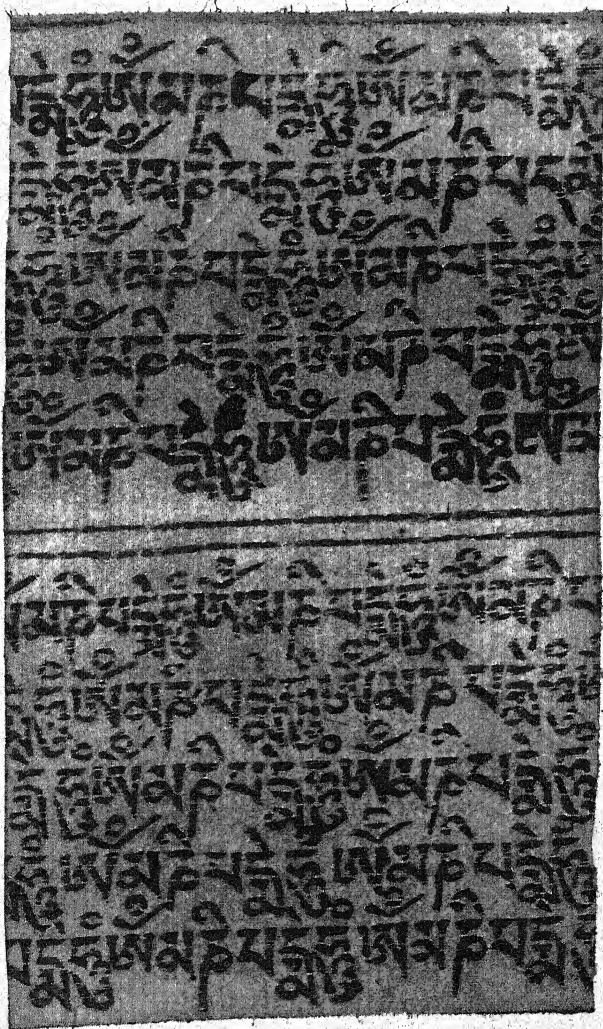 པདྨེཧཱུྃཨོཾམཎིཔདྨེཧཱུྃཨོཾམཎིཔདྨེ
དྨེཧཱུྃཨོཾམཎིཔདྨེཧཱུྃཨོཾམཎིཔདྨེ
ཧཱུྃཨོཾམཎིཔདྨེཧཱུྃཨོཾམཎིཔདྨེཧཱུྃ
ཧཱུྃཨོཾམཎིཔདྨེཧཱུྃཨོཾམཎིཔདྨེཧཱུྃཨོཾ
ཧཱུྃཨོཾམཎིཔདྨེཧཱུྃཨོཾམཎིཔདྨེཧཱུྃཨོཾ
ཨོཾམཎིཔདྨེཧཱུྃཨོཾམཎིཔདྨེཧཱུྃཨོཾམཎིཔ
ཧཱུྃཨོཾམཎིཔདྨེཧཱུྃཨོཾམཎིཔདྨེཧཱུྃ
དྨེཧཱུྃཨོཾམཎིཔདྨེཧཱུྃཨོཾམཎིཔདྨེཧཱུྃ
ཧཱུྃཨོཾམཎིཔདྨེཧཱུྃཨོཾམཎིཔདྨེཧཱུྃ
པདྨེཧཱུྃཨོཾམཎིཔདྨེཧཱུྃཨོཾམཎིཔདྨེཧཱུྃ